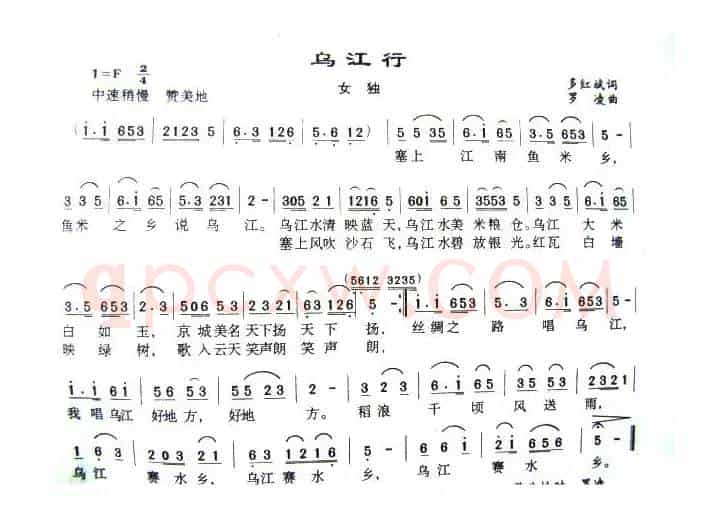 乌江行
1=F 2/4
女独
多红斌词
中速稍慢 赞美地
罗凌曲
(i·i 653 | 2123 5 | 6·3 126 | 5·6 12) | 5 5 35 | 6·i 65 | 3·5 653 | 5 - |
塞上 江南鱼米乡,
3 3 5 | 6·5 35 | 2·3 231 | 2 - | 305 21 | 1216 5 | 601 65 | 3553 5 | 6·i 65 |
鱼米之乡说乌江。乌江水清映蓝天,乌江水美米粮仓。乌江大米
塞上风吹沙石飞,乌江水碧放银光。红瓦白墙
(5612 3235)
3·5 653 | 2·3 | 506 53 | 2321 | 63 126 | 5 - | i·i 653 | 5·3 | 6·i 653 | 5 - |
白如玉,京城美名天下扬天下扬,丝绸之路唱乌江,
映绿树,歌入云天笑声朗笑声朗,
i·i 6i | 56 53 | 2·3 23 | 5 - | 3 23 | 6·i 65 | 3·5 23 | 2321 |
我唱乌江好地方,好地方。稻浪千顷风送雨,
1 63 | 203 21 | 6·3 126 | 5 - | 6·i 63 | 2i 656 | i - | i - |
乌江赛水乡,乌江赛水乡,乌江赛水乡。
qpcxw.COM